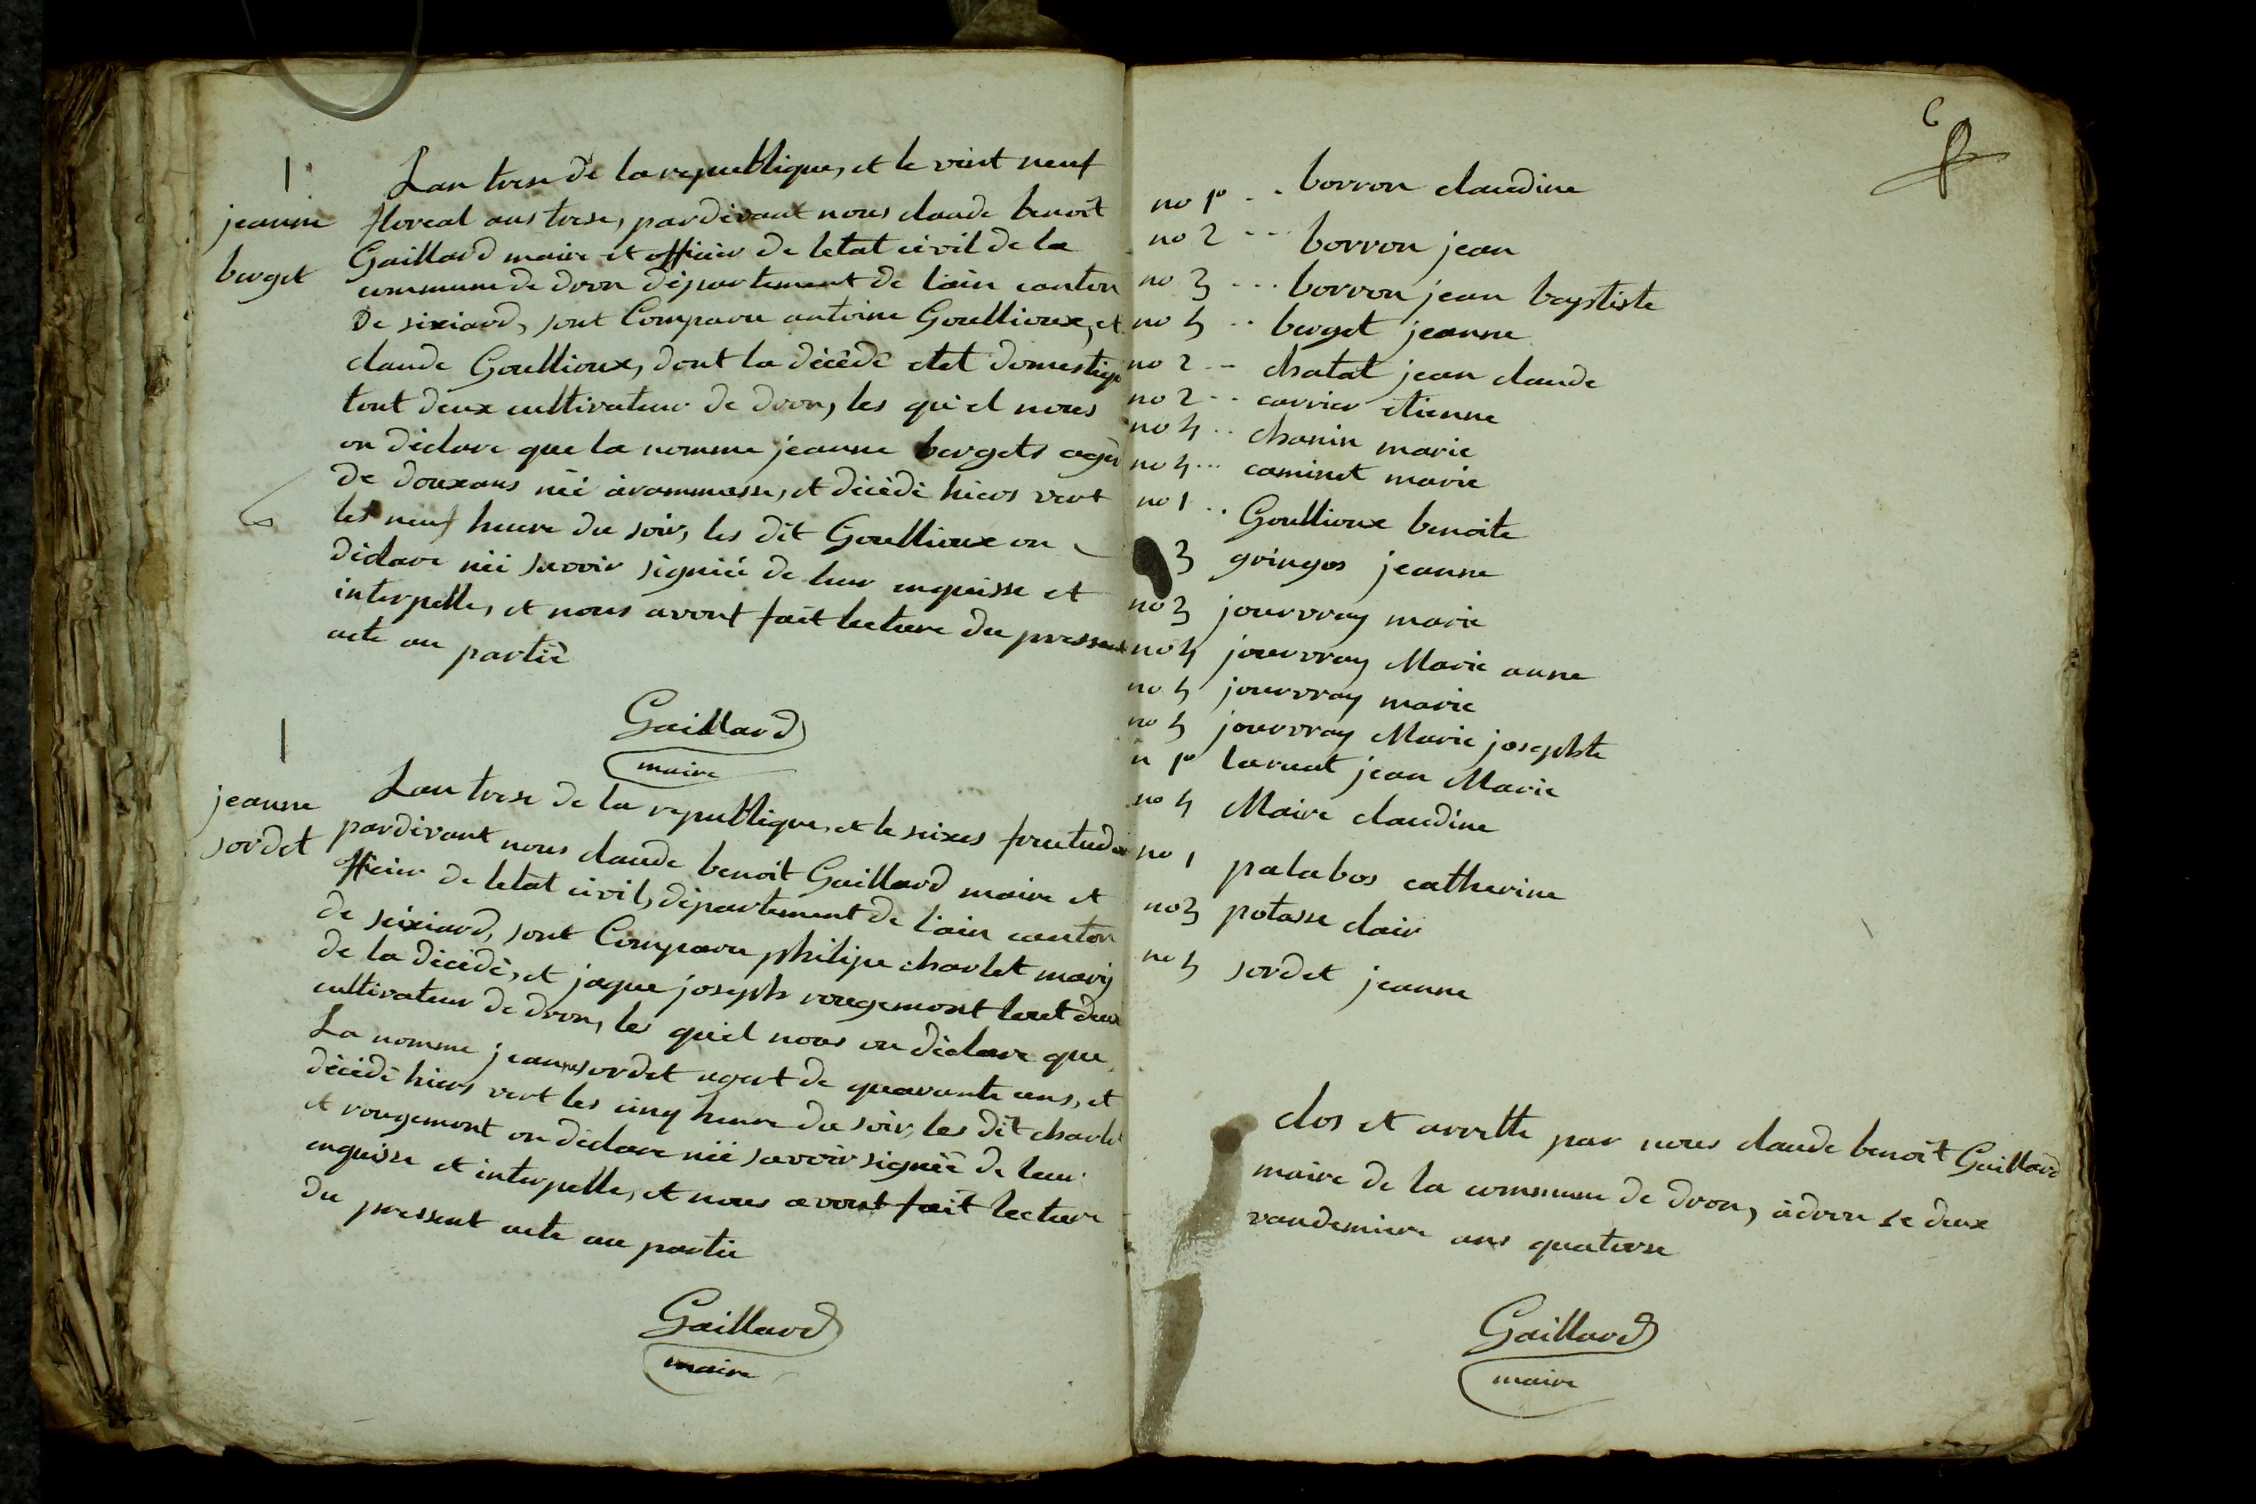 jeanne
berget
Lan trese de la republique, et le vint neuf
floreal ans trese, pardevant nous claude benoit
Gaillard maire et officier de letat civil de la
commune de dron département de l'ain canton
De sixiard, sont Comparu antoine Goullioux, et
claude Goullioux, dont la décèdê etet domestiqe
tout deux cultivateur de dron, les qu'el nous
on déclare que la nomme jeanne bergets agée
de douxans néé àrammasse, et décèdé hiers vert
les neuf heure du soir, les dit Goullioux on
déclare néé savoir signiéé de leur enquisse et
interpelle, et nous avont fait lecture du pressent
acte au partiè
Gaillard
maire
jeanne
sordet
Lan trese de la republique, et le seixes fructud
pardivant nous claude benoit Gaillard maire et
officier de letat civil, département de l'ain canton
de seixiard, sont Comparu philipe charlet marij
de la décèdè, et jaque joseph rougemont tout deux
cultivateur de dron, les quel nous on déclare que
La nomme jeanne sordet agert de quarante ans, et
décèdè hiers vert les cinq heure du soir, les dit charlet
et rougemont on déclare néé savoir signéè de leur
enquisse et interpelle, et nous avont fait lecture
du pressent acte au partie
Gaillard
maire
6
no 1º .. borron claudine
no 2 ... borron jean
no 3 ... borron jean baptiste
no 4 .. berget jeanne
no 2 .. chatat jean claude
no 2 .. carrier etienne
no 4 .. chanin marie
no 4 ... caminet marie
no 1 .. Goullioux benoite
3 gringos jeanne
no 3 jourvray marie
no 4 jourvray Marie anne
no 4 jourvray marie
no 4 jourvray Marie josephte
n 1º laruat jean Marie
no 4 Maire claudine
no 1 palabos catherine
no 3 potasse clair
no 4 sordet jeanne
clos et arrette par nous claude benoit Gaillard
maire de la commune de dron, à dron le deux
vandemiere ans quatorse
Gaillard
maire